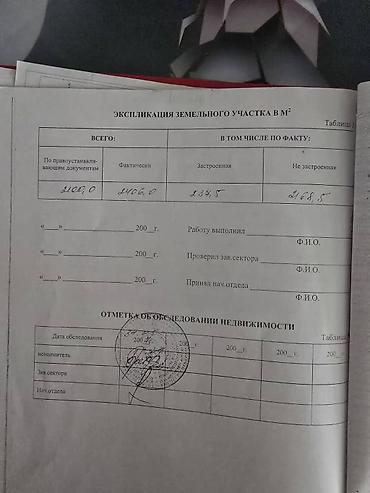 ЭКСПЛИКАЦИЯ ЗЕМЕЛЬНОГО УЧАСТКА В М²
Таблица
ВСЕГО: В ТОМ ЧИСЛЕ ПО ФАКТУ:
По правоустанавли-
вающим документам Фактически Застроенная Не застроенная
2100,0 2406,0 237,5 2168,5
«___» ____________ 200__г. Работу выполнил ____________
Ф.И.О.
«___» ____________ 200__г. Проверил зав.сектора ____________
Ф.И.О.
«___» ____________ 200__г. Принял нач.отдела ____________
Ф.И.О.
ОТМЕТКА ОБ ОБСЛЕДОВАНИИ НЕДВИЖИМОСТИ
Таблица
Дата обследования 200 200__г. 200__г. 200__г.
исполнитель
Зав.сектора
Нач.отдела